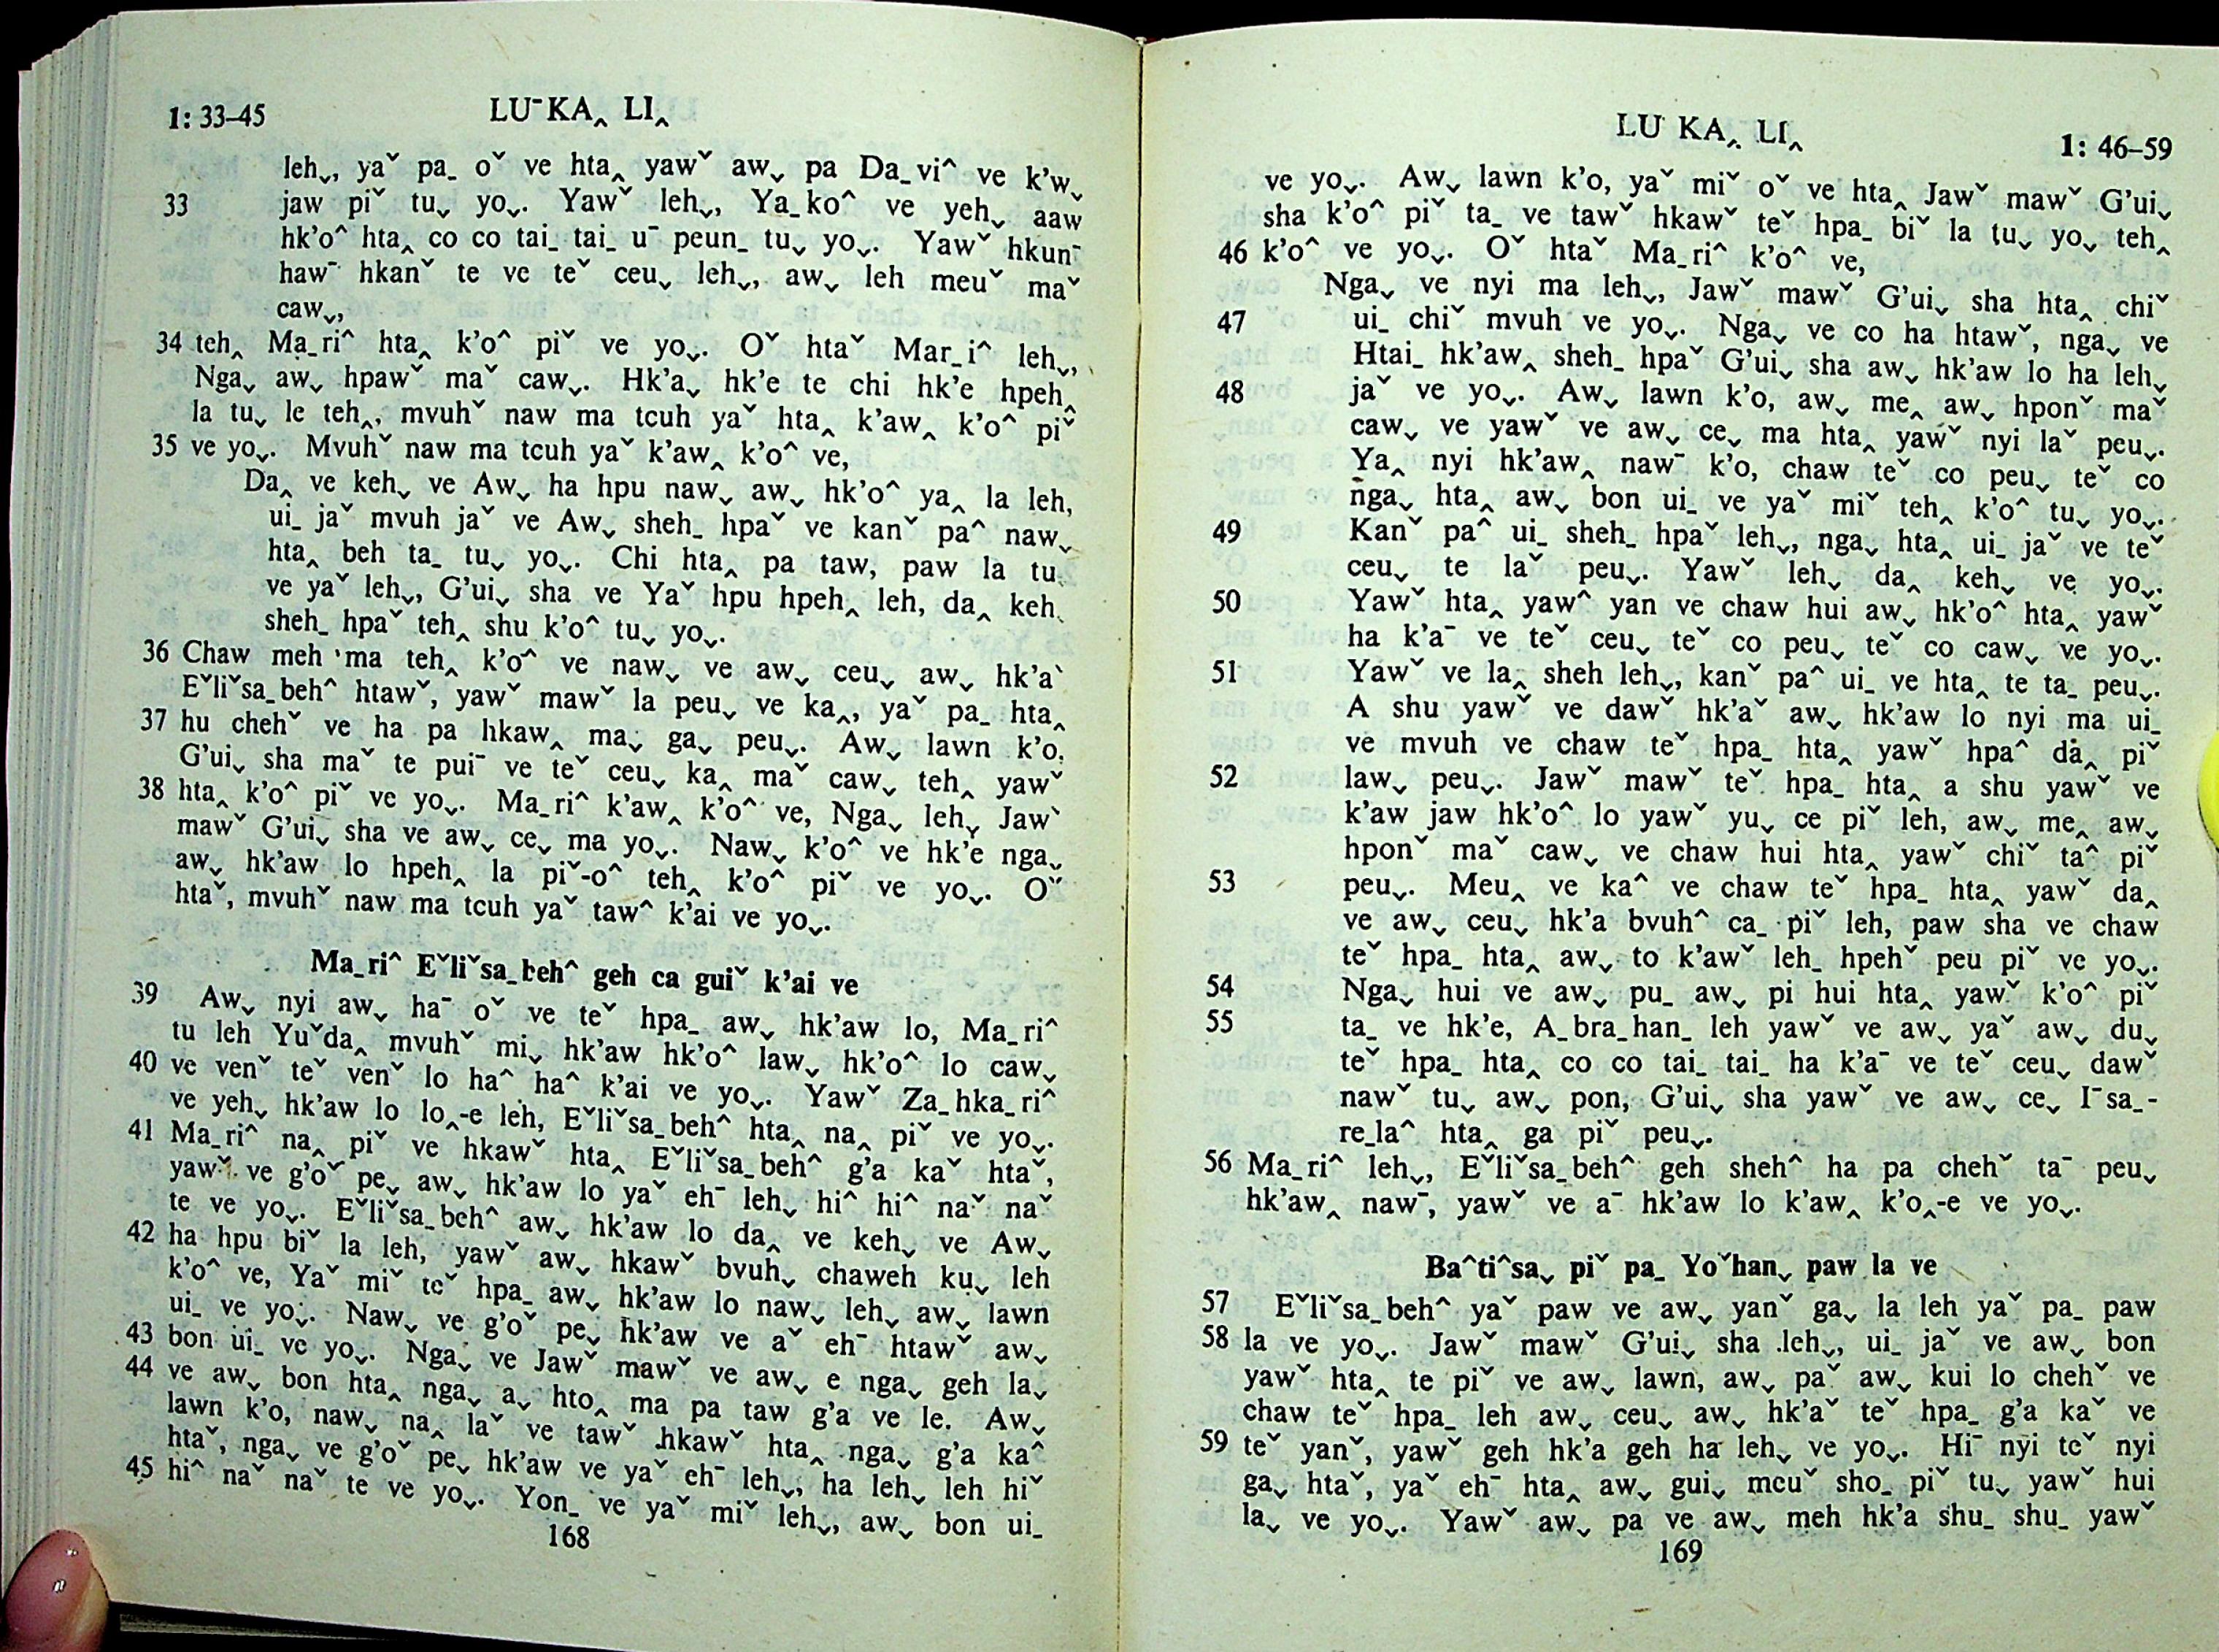 1: 33–45
LUˉKA‸ LI‸
leh˯, yaˇ pa_ oˇ ve hta‸ yawˇ aw˯ pa Da_vi^ ve k'w˯
33 jaw piˇ tu˯ yo˯. Yawˇ leh˯, Ya_ko^ ve yeh˯ aaw
hk'o^ hta‸ co co tai_ tai_ uˉ peun_ tu˯ yo˯. Yawˇ hkunˉ
hawˉ hkanˇ te ve teˇ ceu˯ leh˯, aw˯ leh meuˇ maˇ
caw˯,
34 teh‸ Ma_ri^ hta‸ k'o^ piˇ ve yo˯. Oˇ htaˇ Mar_i^ leh˯,
Nga˯ aw˯ hpawˇ maˇ caw˯. Hk'a˯ hk'e te chi hk'e hpeh‸
la tu˯ le teh‸, mvuhˇ naw ma tcuh yaˇ hta‸ k'aw‸ k'o^ piˇ
35 ve yo˯. Mvuhˇ naw ma tcuh yaˇ k'aw‸ k'o^ ve,
Da‸ ve keh˯ ve Aw˯ ha hpu naw˯ aw˯ hk'o^ ya‸ la leh,
ui_ jaˇ mvuh jaˇ ve Aw˯ sheh_ hpaˇ ve kanˇ pa^ naw˯
hta‸ beh ta_ tu˯ yo˯. Chi hta‸ pa taw, paw la tu˯
ve yaˇ leh˯, G'ui˯ sha ve Yaˇ hpu hpeh‸ leh, da‸ keh˯
sheh_ hpaˇ teh‸ shu k'o^ tu˯ yo˯.
36 Chaw meh ma teh‸ k'o^ ve naw˯ ve aw˯ ceu˯ aw˯ hk'aˇ
Eˇliˇsa_beh^ htawˇ, yawˇ mawˇ la peu˯ ve ka‸, yaˇ pa_ hta‸
37 hu chehˇ ve ha pa hkaw‸ ma˯ ga˯ peu˯. Aw˯ lawn k'o,
G'ui˯ sha maˇ te puiˉ ve teˇ ceu˯ ka‸ maˇ caw˯ teh‸ yawˇ
38 hta‸ k'o^ piˇ ve yo˯. Ma_ri^ k'aw‸ k'o^ ve, Nga˯ leh˯ Jawˇ
mawˇ G'ui˯ sha ve aw˯ ce˯ ma yo˯. Naw˯ k'o^ ve hk'e nga˯
aw˯ hk'aw lo hpeh‸ la piˇ-o^ teh‸ k'o^ piˇ ve yo˯. Oˇ
htaˇ, mvuhˇ naw ma tcuh yaˇ taw^ k'ai ve yo˯.
Ma_ri^ Eˇliˇsa_beh^ geh ca guiˇ k'ai ve
39 Aw˯ nyi aw˯ haˉ oˇ ve teˇ hpa_ aw˯ hk'aw lo, Ma_ri^
tu leh Yuˇda‸ mvuhˇ mi˯ hk'aw hk'o^ law˯ hk'o^ lo caw˯
40 ve venˇ teˇ venˇ lo ha^ ha^ k'ai ve yo˯. Yawˇ Za_hka_ri^
ve yeh˯ hk'aw lo lo‸-e leh, Eˇliˇsa_beh^ hta‸ na‸ piˇ ve yo˯.
41 Ma_ri^ na‸ piˇ ve hkawˇ hta‸ Eˇliˇsa_beh^ g'a kaˇ htaˇ,
yawˇ ve g'oˇ pe˯ aw˯ hk'aw lo yaˇ ehˉ leh˯ hi^ hi^ naˇ naˇ
te ve yo˯. Eˇliˇsa_beh^ aw˯ hk'aw lo da‸ ve keh˯ ve Aw˯
42 ha hpu biˇ la leh, yawˇ aw˯ hkawˇ bvuh˯ chaweh ku˯ leh
k'o^ ve, Yaˇ miˇ teˇ hpa_ aw˯ hk'aw lo naw˯ leh˯ aw˯ lawn
ui_ ve yo˯. Naw˯ ve g'oˇ pe˯ hk'aw ve aˇ ehˉ htawˇ aw˯
43 bon ui_ ve yo˯. Nga˯ ve Jawˇ mawˇ ve aw˯ e nga˯ geh la˯
44 ve aw˯ bon hta‸ nga˯ a˯ hto‸ ma pa taw g'a ve le. Aw˯
lawn k'o, naw˯ na‸ laˇ ve tawˇ hkawˇ hta‸ nga˯ g'a ka^
htaˇ, nga˯ ve g'oˇ pe˯ hk'aw ve yaˇ ehˉ leh˯, ha leh˯ leh hiˇ
45 hi^ naˇ naˇ te ve yo˯. Yon_ ve yaˇ miˇ leh˯, aw˯ bon ui_
168
LU KA‸ LI‸
1: 46–59
ve yo˯. Aw˯ lawn k'o, yaˇ miˇ oˇ ve hta‸ Jawˇ mawˇ G'ui˯
sha k'o^ piˇ ta_ ve tawˇ hkawˇ teˇ hpa_ biˇ la tu˯ yo˯ teh‸
46 k'o^ ve yo˯. Oˇ htaˇ Ma_ri^ k'o^ ve,
Nga˯ ve nyi ma leh˯, Jawˇ mawˇ G'ui˯ sha hta‸ chiˇ
47 ui_ chiˇ mvuh ve yo˯. Nga˯ ve co ha htawˇ, nga˯ ve
Htai_ hk'aw‸ sheh_ hpaˇ G'ui˯ sha aw˯ hk'aw lo ha leh˯
48 jaˇ ve yo˯. Aw˯ lawn k'o, aw˯ me‸ aw˯ hponˇ maˇ
caw˯ ve yawˇ ve aw˯ ce˯ ma hta‸ yawˇ nyi laˇ peu˯.
Ya‸ nyi hk'aw‸ nawˉ k'o, chaw teˇ co peu˯ teˇ co
nga˯ hta‸ aw˯ bon ui_ ve yaˇ miˇ teh‸ k'o^ tu˯ yo˯.
49 Kanˇ pa^ ui_ sheh_ hpaˇ leh˯, nga˯ hta‸ ui_ jaˇ ve teˇ
ceu˯ te laˇ peu˯. Yawˇ leh˯ da‸ keh˯ ve yo˯.
50 Yawˇ hta‸ yaw^ yan ve chaw hui aw˯ hk'o^ hta‸ yawˇ
ha k'aˉ ve teˇ ceu˯ teˇ co peu˯ teˇ co caw˯ ve yo˯.
51 Yawˇ ve la‸ sheh leh˯, kanˇ pa^ ui_ ve hta‸ te ta_ peu˯.
A shu yawˇ ve dawˇ hk'aˇ aw˯ hk'aw lo nyi ma ui_
ve mvuh ve chaw teˇ hpa_ hta‸ yawˇ hpa^ da‸ piˇ
52 law˯ peu˯. Jawˇ mawˇ teˇ hpa_ hta‸ a shu yawˇ ve
k'aw jaw hk'o^ lo yawˇ yu˯ ce piˇ leh, aw˯ me‸ aw˯
hponˇ maˇ caw˯ ve chaw hui hta‸ yawˇ chiˇ ta^ piˇ
53 peu˯. Meu‸ ve ka^ ve chaw teˇ hpa_ hta‸ yawˇ da‸
ve aw˯ ceu˯ hk'a bvuh^ ca_ piˇ leh, paw sha ve chaw
teˇ hpa_ hta‸ aw˯ to k'awˇ leh_ hpehˇ peu piˇ ve yo˯.
54 Nga˯ hui ve aw˯ pu_ aw˯ pi hui hta‸ yawˇ k'o^ piˇ
55 ta_ ve hk'e, A_bra_han_ leh yawˇ ve aw˯ yaˇ aw˯ du˯
teˇ hpa_ hta‸ co co tai_ tai_ ha k'aˉ ve teˇ ceu˯ dawˇ
nawˇ tu˯ aw˯ pon, G'ui˯ sha yawˇ ve aw˯ ce˯ Iˉsa_-
re_la^ hta‸ ga piˇ peu˯.
56 Ma_ri^ leh˯, Eˇliˇsa_beh^ geh sheh^ ha pa chehˇ taˉ peu˯
hk'aw‸ nawˉ, yawˇ ve aˉ hk'aw lo k'aw‸ k'o‸-e ve yo˯.
Ba^ti^sa˯ piˇ pa_ Yoˇhan˯ paw la ve
57 Eˇliˇsa_beh^ yaˇ paw ve aw˯ yanˇ ga˯ la leh yaˇ pa_ paw
58 la ve yo˯. Jawˇ mawˇ G'ui˯ sha leh˯, ui_ jaˇ ve aw˯ bon
yawˇ hta‸ te piˇ ve aw˯ lawn, aw˯ paˇ aw˯ kui lo chehˇ ve
chaw teˇ hpa_ leh aw˯ ceu˯ aw˯ hk'aˇ teˇ hpa_ g'a kaˇ ve
59 teˇ yanˇ, yawˇ geh hk'a geh ha leh˯ ve yo˯. Hiˉ nyi teˇ nyi
ga˯ htaˇ, yaˇ ehˉ hta‸ aw˯ gui˯ meuˇ sho_ piˇ tu˯ yawˇ hui
la˯ ve yo˯. Yawˇ aw˯ pa ve aw˯ meh hk'a shu_ shu_ yawˇ
169